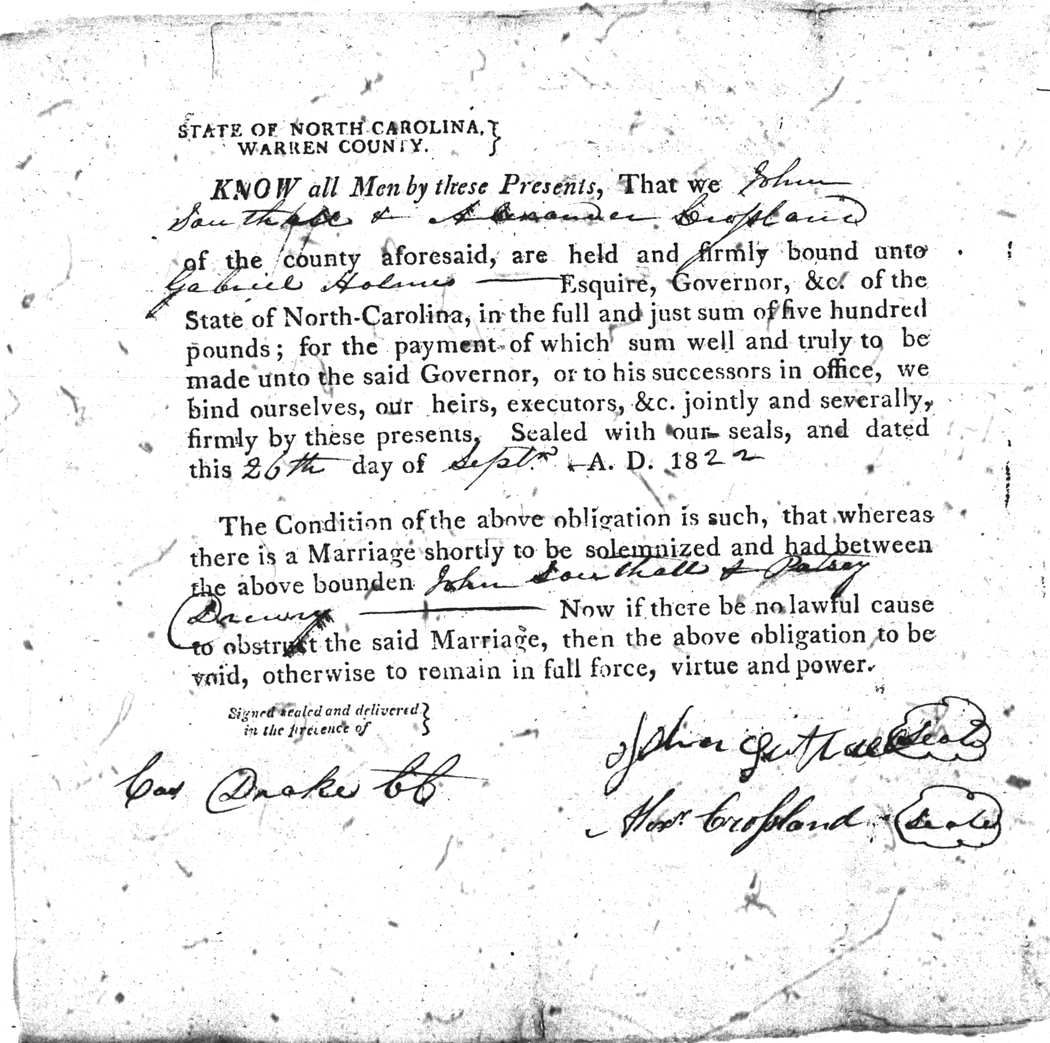 STATE OF NORTH-CAROLINA,}
WARREN COUNTY.
KNOW all Men by these Presents, That we John
Southall & Alexander Croſsland
of the county aforesaid, are held and firmly bound unto
Gabriel Holmes — Esquire, Governor, &c. of the
State of North-Carolina, in the full and just sum of five hundred
pounds; for the payment of which sum well and truly to be
made unto the said Governor, or to his successors in office, we
bind ourselves, our heirs, executors, &c. jointly and severally,
firmly by these presents, Sealed with our seals, and dated
this 26th day of Septr. A. D. 1822
The Condition of the above obligation is such, that whereas
there is a Marriage shortly to be solemnized and had between
the above bounden John Southall & Patsey
Drewry — Now if there be no lawful cause
to obstruct the said Marriage, then the above obligation to be
void, otherwise to remain in full force, virtue and power.
Signed sealed and delivered}
in the presence of
John Suthall Seal
Cas Drake CC
Alexr. Croſsland Seal